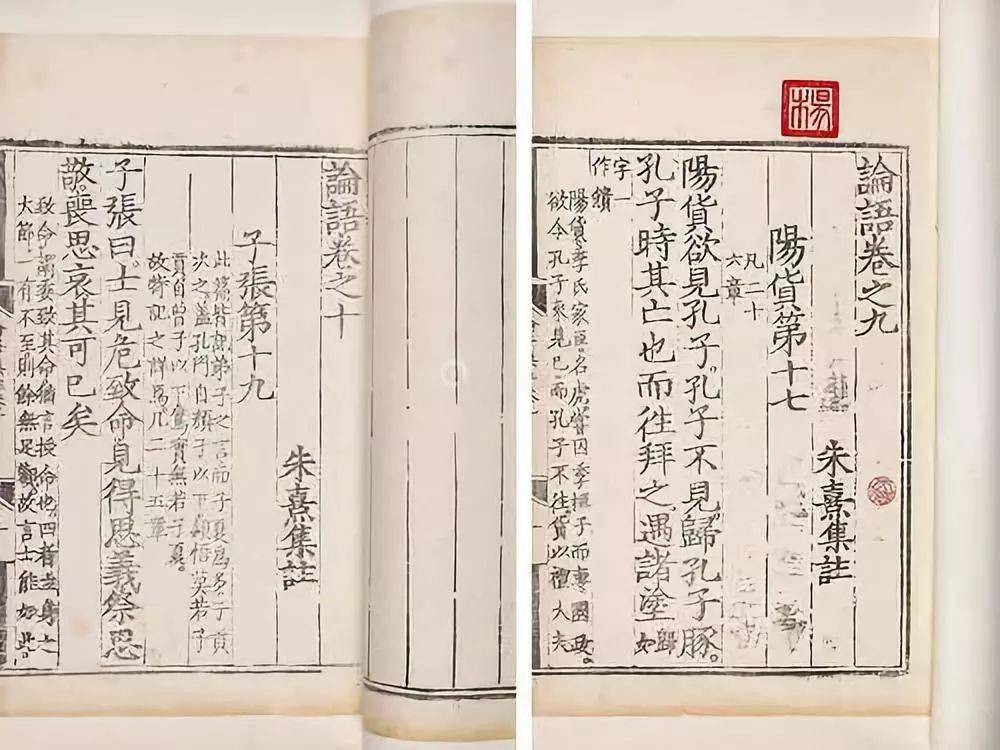 楊
論語卷之九
朱熹集註
陽貨第十七
凡二十
六章
陽貨欲見孔子孔子不見歸孔子豚。
孔子時其亡也而往拜之遇諸塗歸如
字一
作饋
陽貨季氏家臣名虎嘗囚季桓子而專國政。
欲令孔子來見己而孔子不往貨以禮大夫
論語卷之十
朱熹集註
子張第十九
此篇皆記弟子之言而子夏為多子貢
次之蓋孔門自顏子以下穎悟莫若子
貢自曾子以下篤實無若子夏。
故特記之詳焉凡二十五章
子張曰士見危致命見得思義祭思
敬喪思哀其可已矣
致命謂委致其命猶言授命也四者立身之
大節一有不至則餘無足觀故言士能如此。